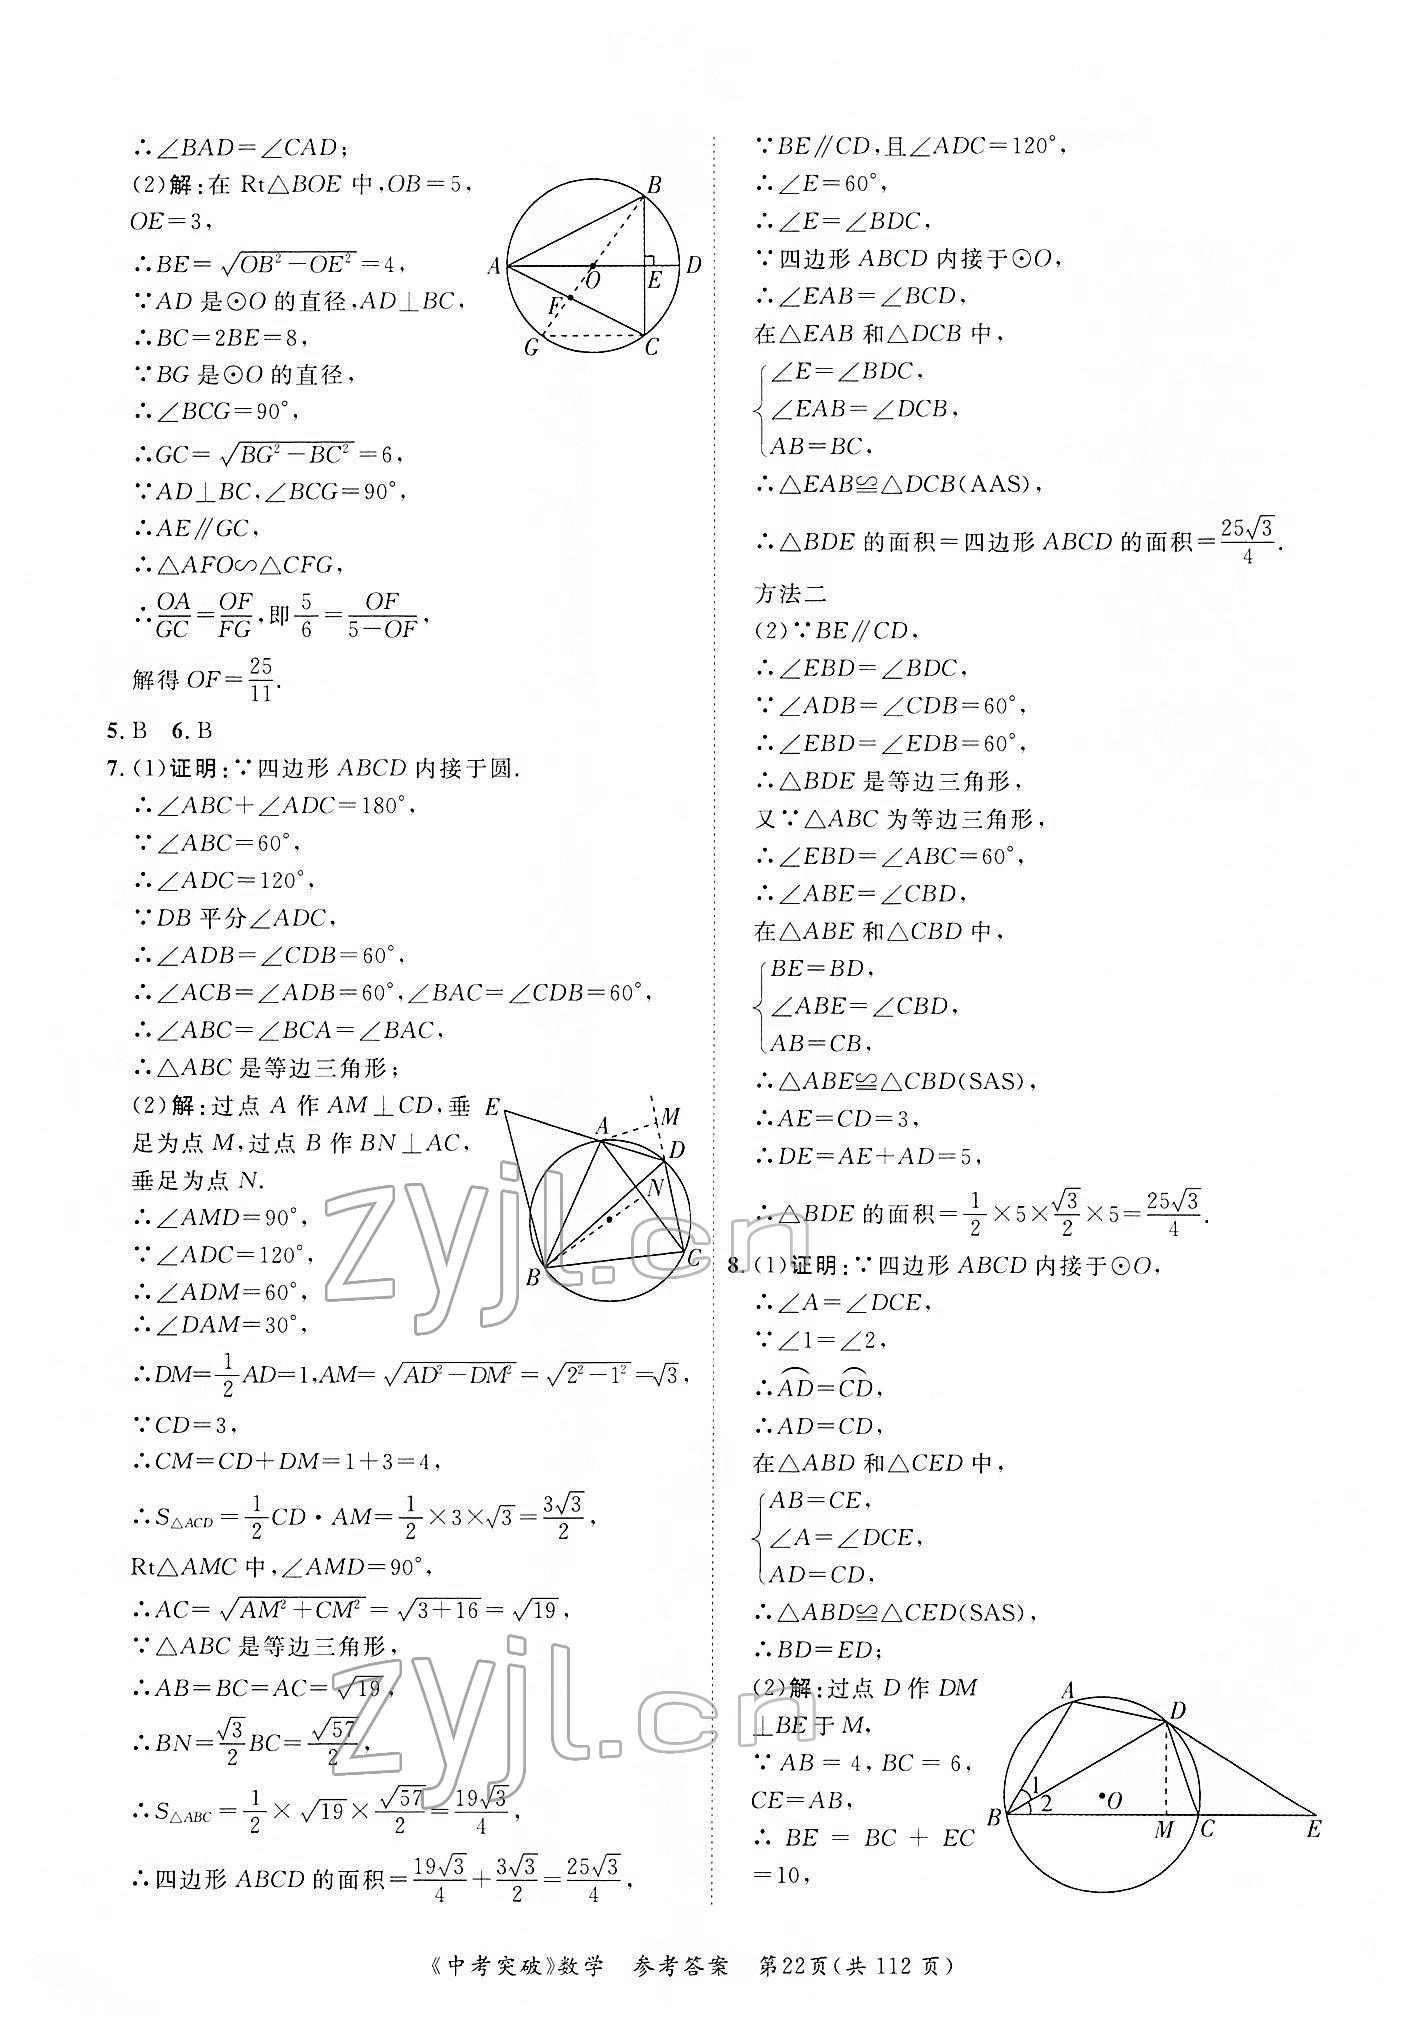 ∴∠BAD=∠CAD;
(2)解:在 Rt△BOE 中,OB=5,
OE=3,
∴BE=√(OB²-OE²)=4,
∵AD 是⊙O 的直径,AD⊥BC,
∴BC=2BE=8,
∵BG 是⊙O 的直径,
∴∠BCG=90°,
∴GC=√(BG²-BC²)=6,
∵AD⊥BC,∠BCG=90°,
∴AE∥GC,
∴△AFO∽△CFG,
∴OA/GC=OF/FG,即5/6=OF/(5-OF),
解得 OF=25/11.
B
A
O
E
D
F
G
C
5. B 6. B
7. (1)证明:∵四边形 ABCD 内接于圆.
∴∠ABC+∠ADC=180°,
∵∠ABC=60°,
∴∠ADC=120°,
∵DB 平分∠ADC,
∴∠ADB=∠CDB=60°,
∴∠ACB=∠ADB=60°,∠BAC=∠CDB=60°,
∴∠ABC=∠BCA=∠BAC,
∴△ABC 是等边三角形;
(2)解:过点 A 作 AM⊥CD,垂
足为点 M,过点 B 作 BN⊥AC,
垂足为点 N.
∴∠AMD=90°,
∵∠ADC=120°,
∴∠ADM=60°,
∴∠DAM=30°,
∴DM=1/2AD=1,AM=√(AD²-DM²)=√(2²-1²)=√3,
∵CD=3,
∴CM=CD+DM=1+3=4,
∴S△ACD=1/2CD·AM=1/2×3×√3=3√3/2,
Rt△AMC 中,∠AMD=90°,
∴AC=√(AM²+CM²)=√(3+16)=√19,
∵△ABC 是等边三角形,
∴AB=BC=AC=√19,
∴BN=√3/2BC=√57/2,
∴S△ABC=1/2×√19×√57/2=19√3/4,
∴四边形 ABCD 的面积=19√3/4+3√3/2=25√3/4,
E
A
M
D
N
B
C
∵BE∥CD,且∠ADC=120°,
∴∠E=60°,
∴∠E=∠BDC,
∵四边形 ABCD 内接于⊙O,
∴∠EAB=∠BCD,
在△EAB 和△DCB 中,
∠E=∠BDC,
∠EAB=∠DCB,
AB=BC,
∴△EAB≌△DCB(AAS),
∴△BDE 的面积=四边形 ABCD 的面积=25√3/4.
方法二
(2)∵BE∥CD,
∴∠EBD=∠BDC,
∵∠ADB=∠CDB=60°,
∴∠EBD=∠EDB=60°,
∴△BDE 是等边三角形,
又∵△ABC 为等边三角形,
∴∠EBD=∠ABC=60°,
∴∠ABE=∠CBD,
在△ABE 和△CBD 中,
BE=BD,
∠ABE=∠CBD,
AB=CB,
∴△ABE≌△CBD(SAS),
∴AE=CD=3,
∴DE=AE+AD=5,
∴△BDE 的面积=1/2×5×√3/2×5=25√3/4.
8. (1)证明:∵四边形 ABCD 内接于⊙O,
∴∠A=∠DCE,
∵∠1=∠2,
∴⌒AD=⌒CD,
∴AD=CD,
在△ABD 和△CED 中,
AB=CE,
∠A=∠DCE,
AD=CD,
∴△ABD≌△CED(SAS),
∴BD=ED;
(2)解:过点 D 作 DM
⊥BE 于 M,
∵ AB = 4, BC = 6,
CE=AB,
∴ BE = BC + EC
=10,
A
D
1
2
O
B
M
C
E
zyjl.cn
zyjl.cn
《中考突破》数学 参考答案 第22页(共 112 页)